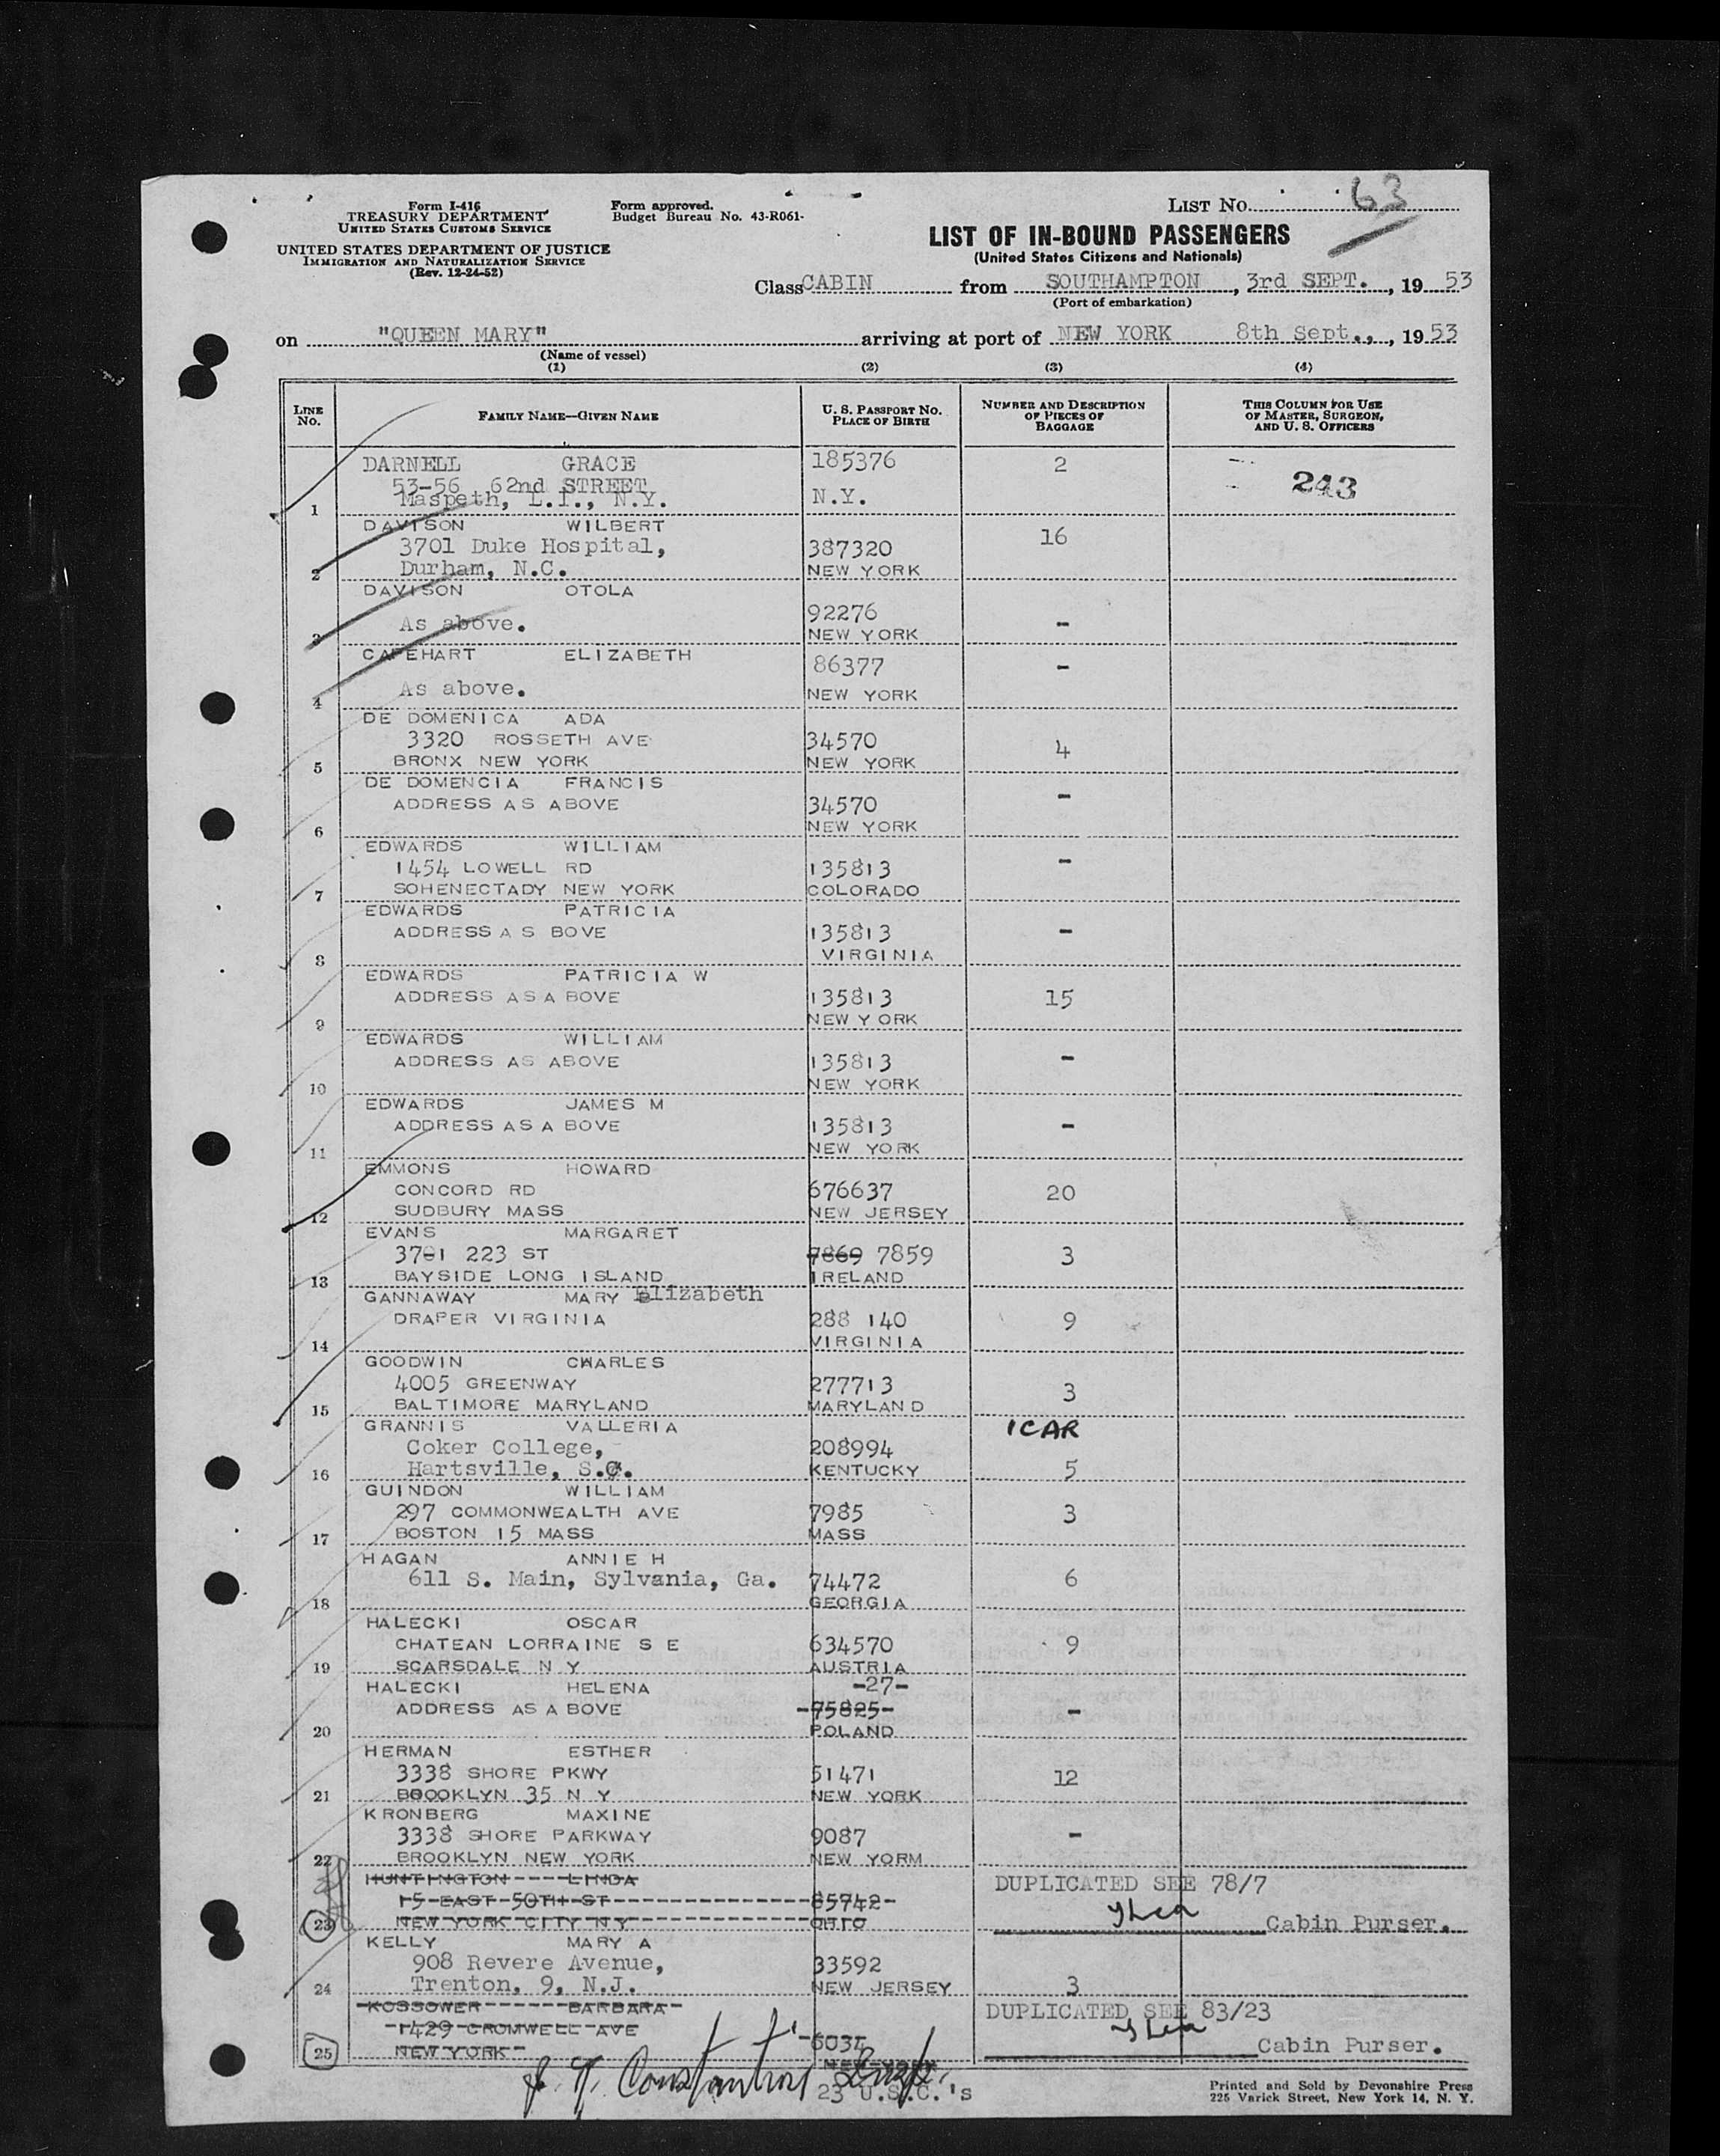 Form I-416
TREASURY DEPARTMENT
UNITED STATES CUSTOMS SERVICE
UNITED STATES DEPARTMENT OF JUSTICE
IMMIGRATION AND NATURALIZATION SERVICE
(Rev. 12-24-52)
Form approved.
Budget Bureau No. 43-R061-
LIST NO. 63
LIST OF IN-BOUND PASSENGERS
(United States Citizens and Nationals)
Class CABIN from SOUTHAMPTON, 3rd SEPT., 19 53
(Port of embarkation)
on "QUEEN MARY" arriving at port of NEW YORK 8th Sept., 19 53
(Name of vessel)
(1) (2) (3) (4)
LINE NO. FAMILY NAME—GIVEN NAME U. S. PASSPORT NO. PLACE OF BIRTH NUMBER AND DESCRIPTION OF PIECES OF BAGGAGE THIS COLUMN FOR USE OF MASTER, SURGEON, AND U. S. OFFICERS
DARNELL GRACE 185376 2 243
53-56 62nd STREET
1 Maspeth, L.I., N.Y. N.Y.
DAVISON WILBERT 16
3701 Duke Hospital, 387320
2 Durham, N.C. NEW YORK
DAVISON OTOLA
As above. 92276 -
3 NEW YORK
CAPEHART ELIZABETH 86377 -
As above.
4 NEW YORK
DE DOMENICA ADA
3320 ROSSETH AVE 34570 4
5 BRONX NEW YORK NEW YORK
DE DOMENCIA FRANCIS
ADDRESS AS ABOVE 34570 -
6 NEW YORK
EDWARDS WILLIAM
1454 LOWELL RD 135813 -
7 SOHENECTADY NEW YORK COLORADO
EDWARDS PATRICIA
ADDRESS A S BOVE 135813 -
8 VIRGINIA
EDWARDS PATRICIA W
ADDRESS AS A BOVE 135813 15
9 NEW Y ORK
EDWARDS WILLIAM
ADDRESS AS ABOVE 135813 -
10 NEW YORK
EDWARDS JAMES M
ADDRESS AS A BOVE 135813 -
11 NEW YORK
EMMONS HOWARD
CONCORD RD 676637 20
12 SUDBURY MASS NEW JERSEY
EVANS MARGARET
3701 223 ST 7869 7859 3
13 BAYSIDE LONG ISLAND IRELAND
GANNAWAY MARY Elizabeth
DRAPER VIRGINIA 288 140 9
14 VIRGINIA
GOODWIN CHARLES
4005 GREENWAY 277713 3
15 BALTIMORE MARYLAND MARYLAND
GRANNIS VALLERIA 1 CAR
Coker College, 208994
16 Hartsville, S.C. KENTUCKY 5
GUINDON WILLIAM
297 COMMONWEALTH AVE 7985 3
17 BOSTON 15 MASS MASS
HAGAN ANNIE H
611 S. Main, Sylvania, Ga. 74472 6
18 GEORGIA
HALECKI OSCAR
CHATEAN LORRAINE S E 634570 9
19 SCARSDALE N Y AUSTRIA
HALECKI HELENA -27-
ADDRESS AS A BOVE -75825- -
20 POLAND
HERMAN ESTHER
3338 SHORE PKWY 51471 12
21 BROOKLYN 35 N Y NEW YORK
KRONBERG MAXINE
3338 SHORE PARKWAY 9087 -
22 BROOKLYN NEW YORK NEW YORM
HUNTINGTON LINDA DUPLICATED SEE 78/7
15 EAST 50TH ST 85742
23 NEW YORK CITY N Y OHIO Cabin Purser.
KELLY MARY A
908 Revere Avenue, 33592
24 Trenton, 9, N.J. NEW JERSEY 3
KOSSOWER BARBARA DUPLICATED SEE 83/23
1429 CROMWELL AVE
25 NEW YORK Cabin Purser.
23 U.S.C.'s
Printed and Sold by Devonshire Press
225 Varick Street, New York 14, N. Y.